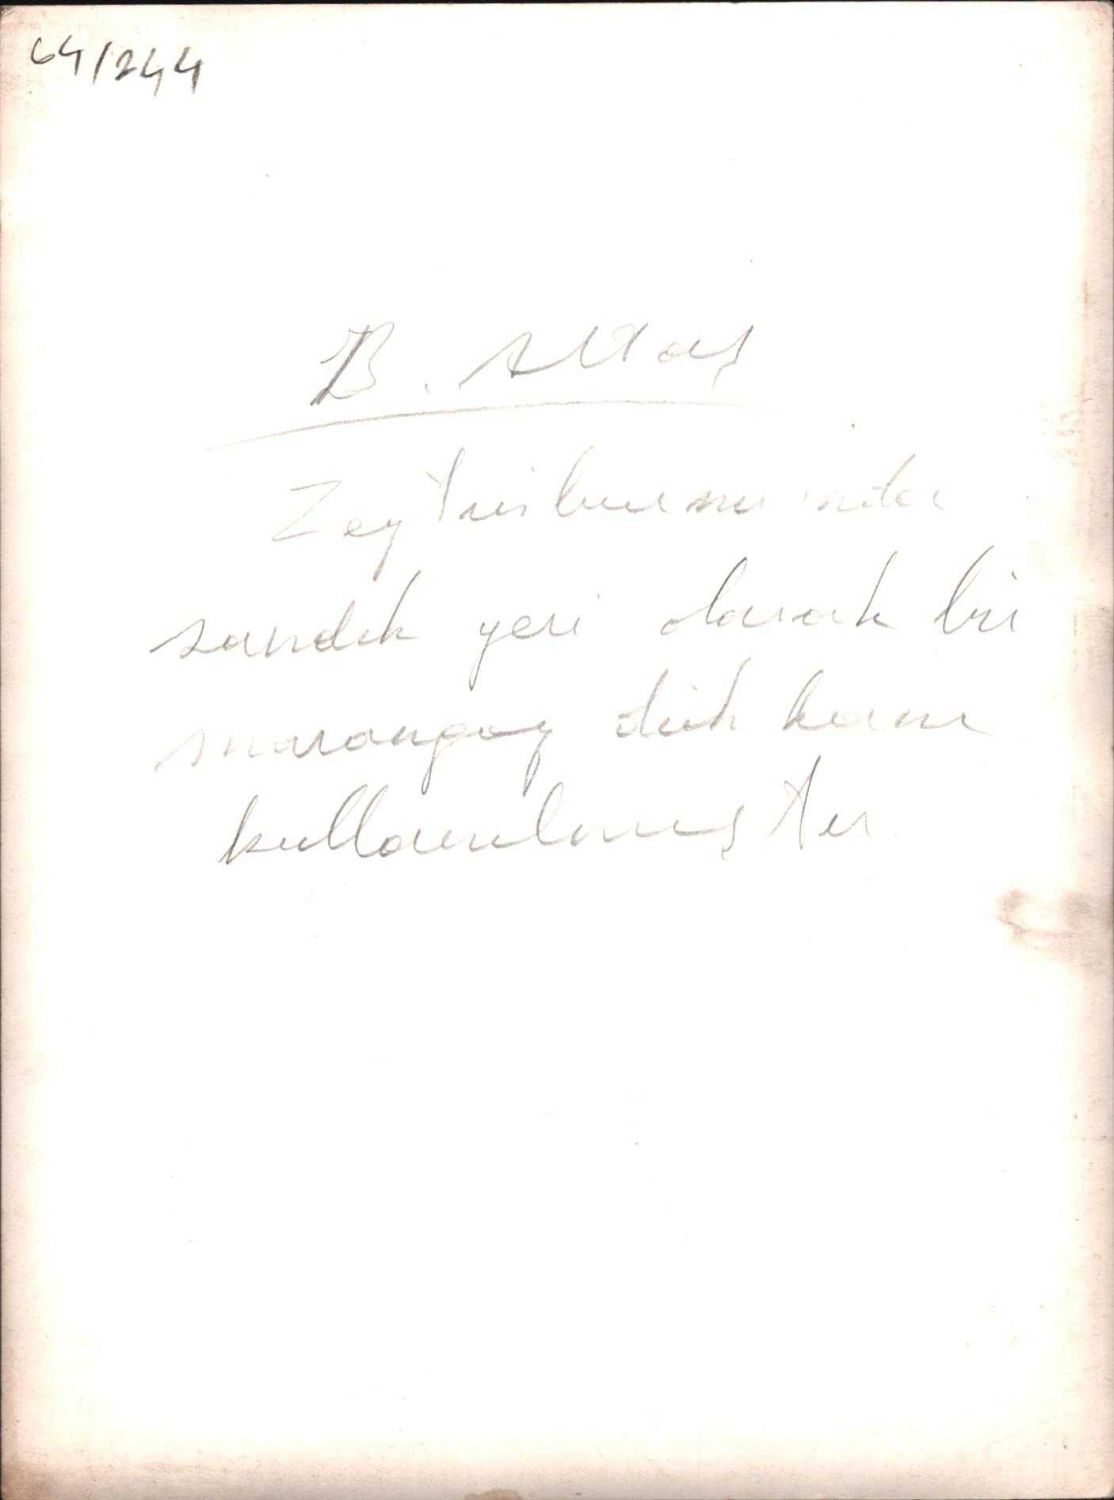 64/244
B. Aktaş
Zeytinburnu'nda
sandık yeri olarak bir
marangoz dükkanı
kullanılmıştır